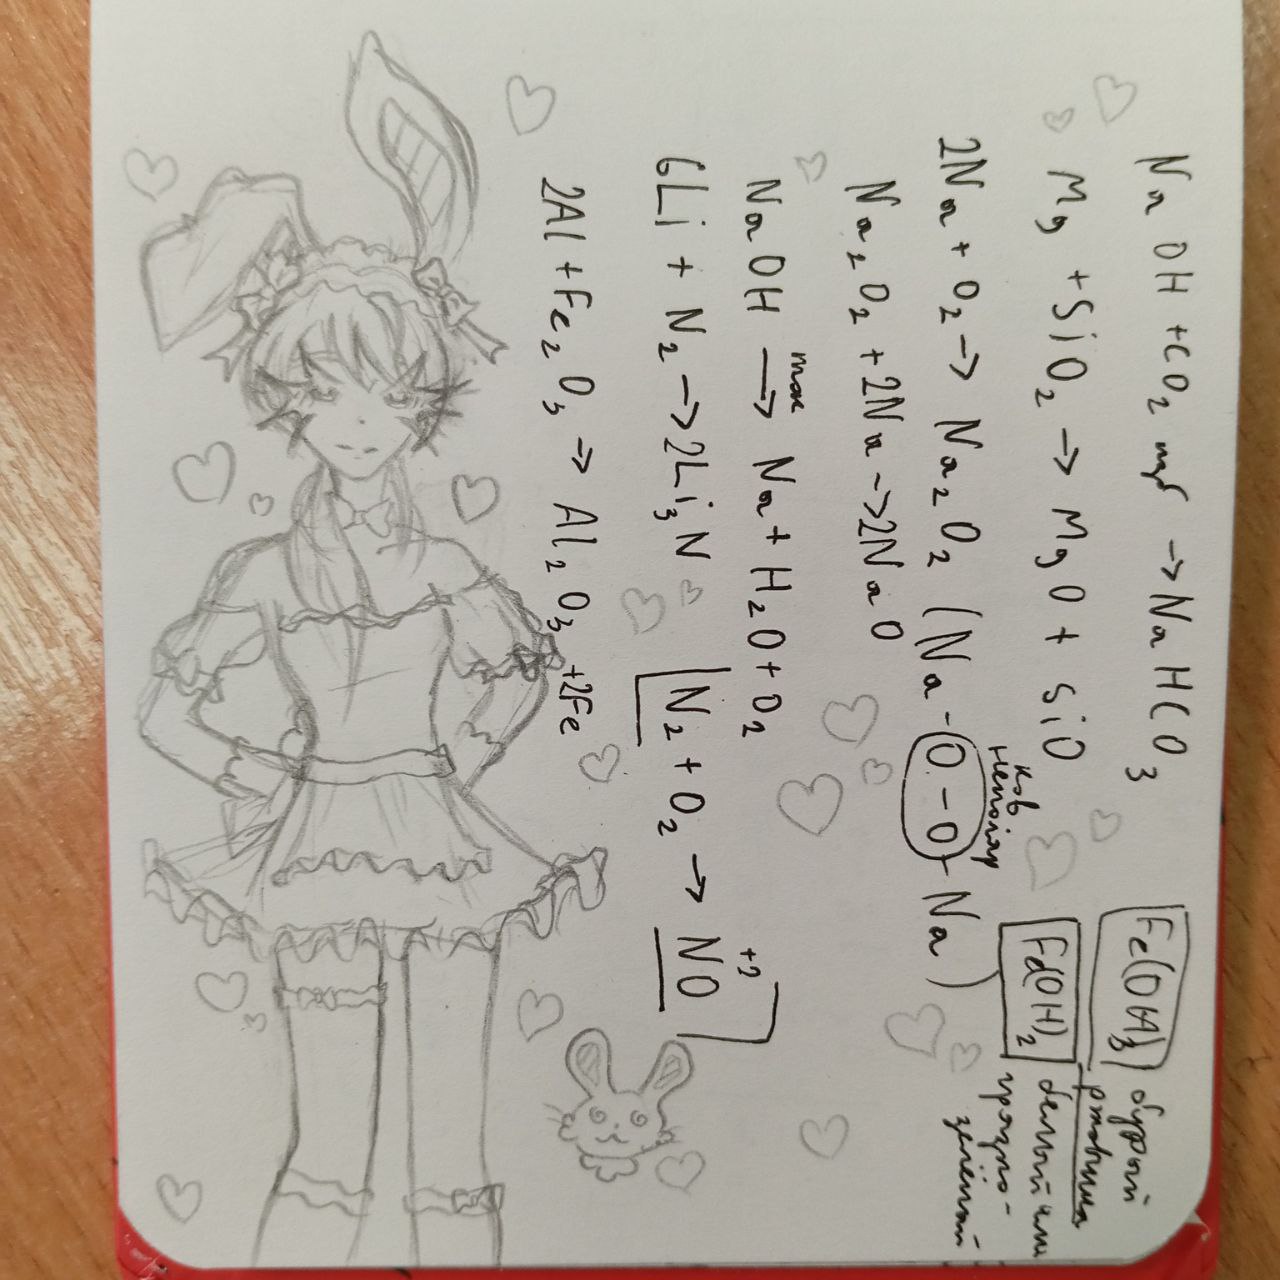 NaOH + CO₂ изб → NaHCO₃
Mg + SiO₂ → MgO + SiO
2Na + O₂ → Na₂O₂ (Na-O-O-Na)
ков
неполяр
Na₂O₂ + 2Na → 2Na₂O
NaOH →ток Na + H₂O + O₂
6Li + N₂ → 2Li₃N
N₂ + O₂ → NO⁺²
2Al + Fe₂O₃ → Al₂O₃ + 2Fe
Fe(OH)₃ бурый
ржавчина
Fe(OH)₂ белый или
грязно-
зелёный